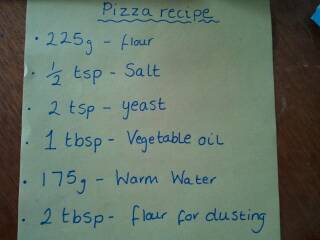 Pizza recipe
· 225g - flour
· ½ tsp - Salt
· 2 tsp - yeast
· 1 tbsp - Vegetable oil
· 175g - Warm Water
· 2 tbsp - flour for dusting